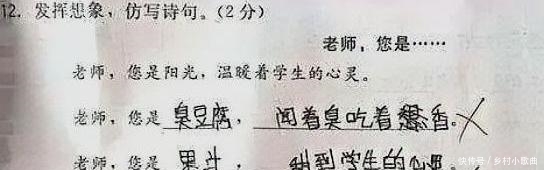 12. 发挥想象，仿写诗句。(2分)
老师，您是……
老师，您是阳光，温暖着学生的心灵。
老师，您是臭豆腐，闻着臭吃着香。
老师，您是果汁，甜到学生的心里。
快传号 / 乡村小歌曲